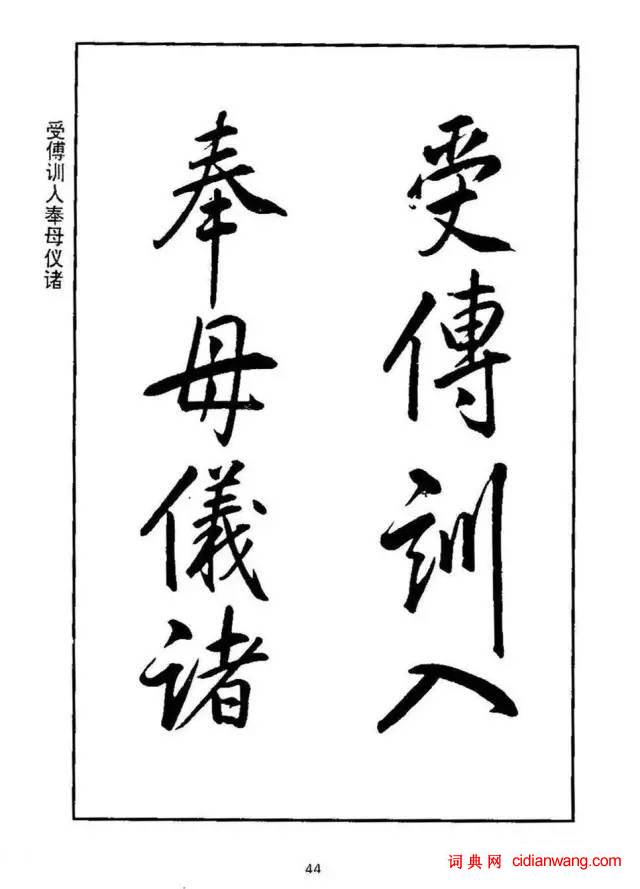 受傅訓入
奉母儀諸
受傅训人奉母仪诸
44
词典网 cidianwang.com